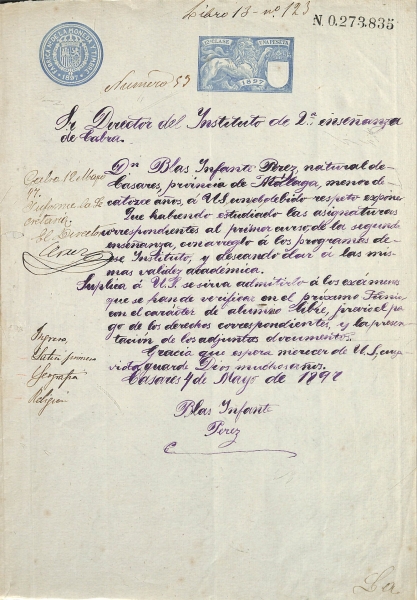 Libro 13 - nº 123
N.0.273.835
1897
CLASE 11ª
UNA PESETA
1897
Numero 53
Sr. Director del Instituto de 2ª enseñanza
de Cabra.
Cabra 12 Mayo
97.
Dn. Blas Infante Perez, natural de
Casares, provincia de Málaga, menor de
catorce años, á U.S. con el debido respeto expone
Que habiendo estudiado las asignaturas
correspondientes al primer curso de la segunda
enseñanza, con arreglo á los programas de
ese Instituto, y deseando dar á las mis
mas validez académica.
Suplica á U.S. se sirva admitirlo á los exámenes
que se han de verificar en el próximo Junio
con el carácter de alumno libre, previo el pa
go de los derechos correspondientes, y la presen
tación de los adjuntos documentos.
Gracia que espera merecer de U.S., cuya
vida guarde Dios muchos años.
Casares 4 de Mayo de 1897
Ingreso,
Latín primero
Geografía
Religión
Blas Infante
Perez